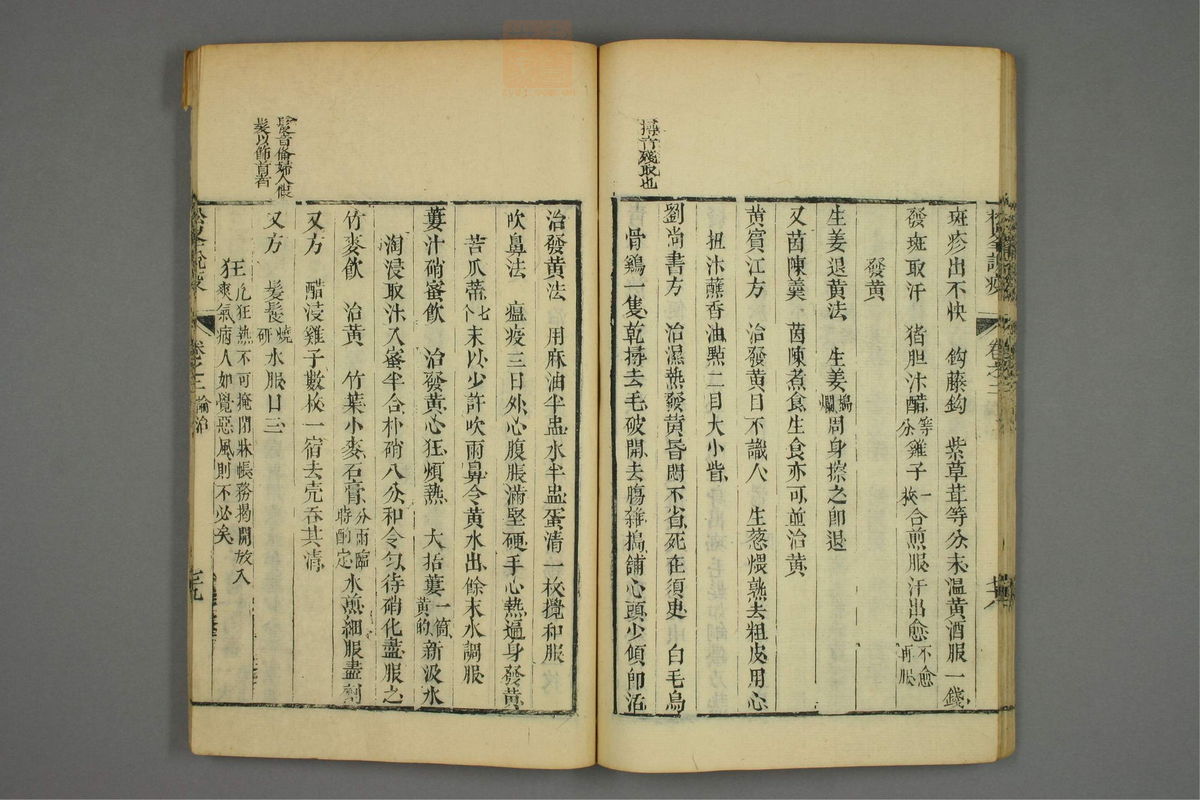 撏音殘取也
斑疹出不快　鈎藤鈎　紫草茸等分末温黄酒服一錢
發斑取汗　猪胆汁醋等分雞子一枚合煎服汗出愈不愈再服
發黄
生姜退黄法　生姜搗爛周身擦之卽退
又茵陳羹　茵陳煮食生食亦可並治黄
黄賓江方　治發黄目不識人　生葱煨熟去粗皮用心
扭汁蘸香油點二目大小眥
劉尚書方　治濕熱發黄昏悶不省死在須臾　白毛烏
骨鷄一隻乾撏去毛破開去腸雜搗鋪心頭少傾卽活
卷之三
髲音偹婦人假
髮以飾首者
治發黄法　用麻油半盅水半盅蛋清一枚攪和服
吹鼻法　瘟疫三日外心腹脹滿堅硬手心熱遍身發黄
苦瓜蒂七个末以少許吹兩鼻令黄水出餘末水調服
蔞汁硝蜜飲　治發黄心狂煩熱　大括蔞一筒黄的新汲水
淘浸取汁入蜜半合朴硝八分和令匀待硝化盡服之
竹麥飲　治黄　竹葉小麥石膏分兩臨時酌定水煎細服盡劑
又方　醋浸雞子數枚一宿去壳吞其清
又方　髲髢燒研水服日三
狂凢狂熱不可掩閉牀帳務揭開放入
爽氣病人如覺惡風則不必矣
松峯說疫
卷之三
論治